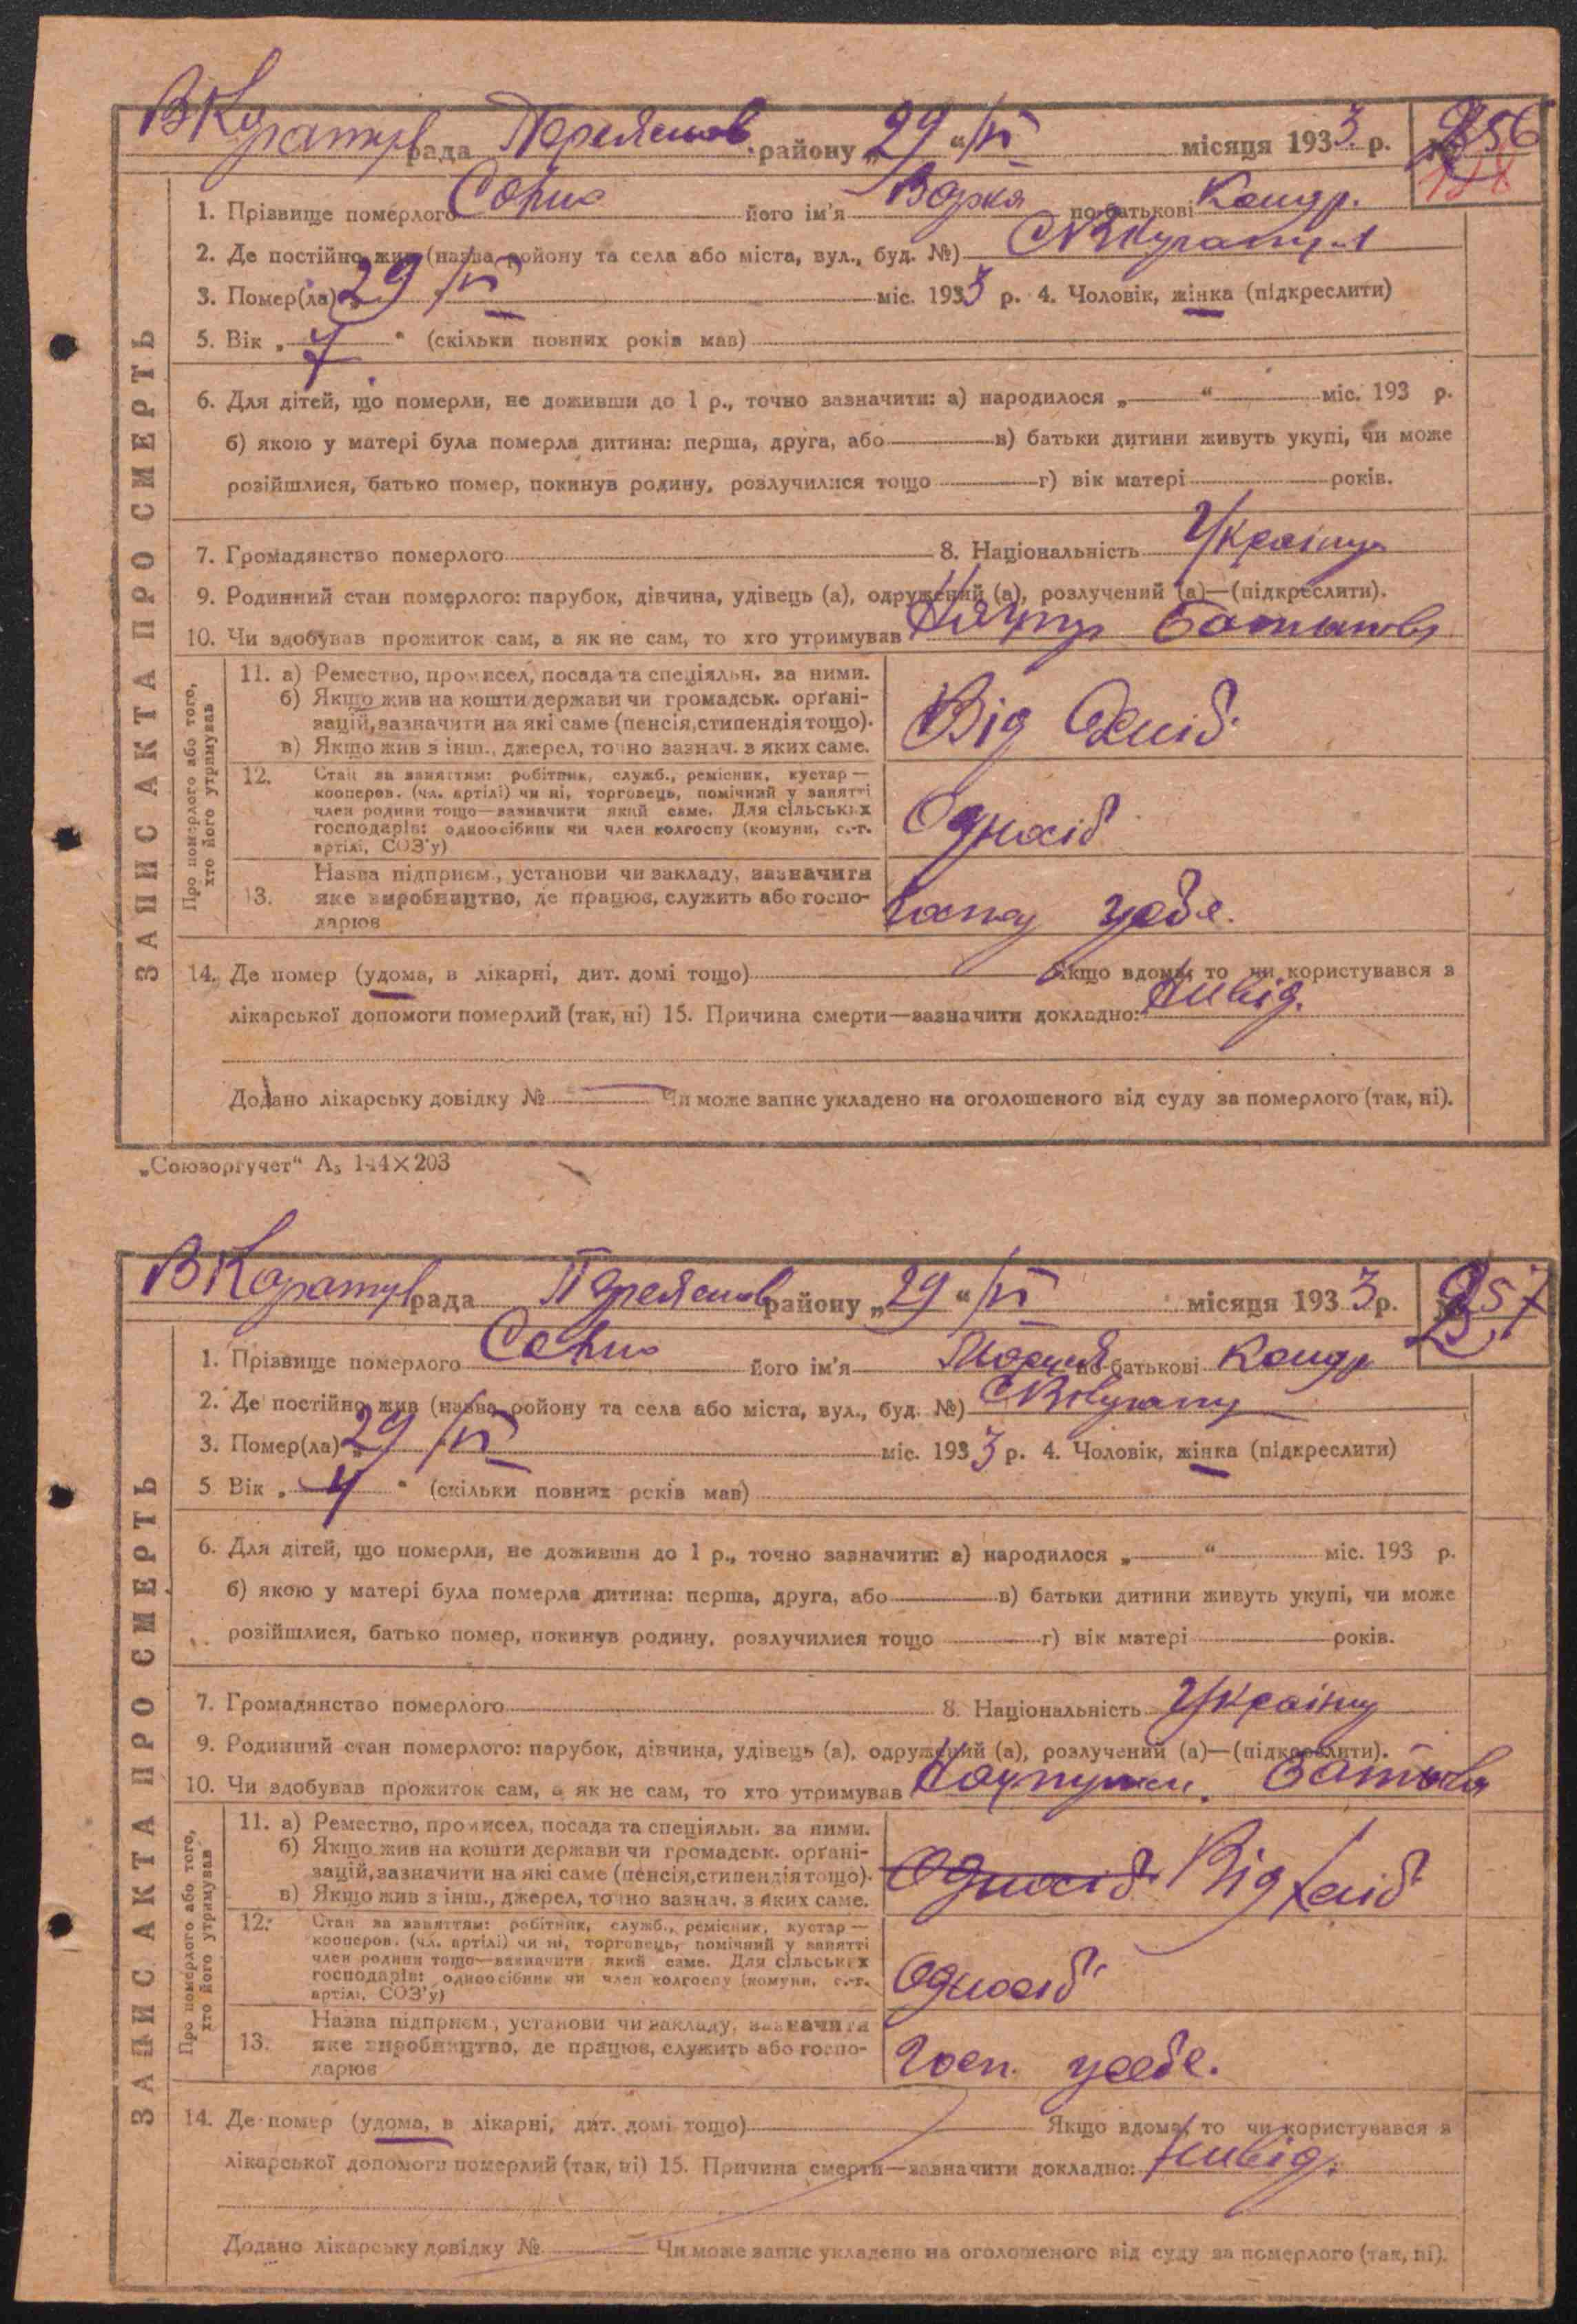 ВКаратул рада Переяслов району „29 “ /VI місяця 1933 р. № 256
1. Прізвище померлого його ім'я Варка по батькові Кондр.
2. Де постійно жив (назва ройону та села або міста, вул., буд. №)
3. Помер(ла) „29 /VI міс. 1933 р. 4. Чоловік, жінка (підкреслити)
5. Вік „ 7 “ (скільки повних років мав)
6. Для дітей, що померли, не доживши до 1 р., точно зазначити: а) народилося „ “ міс. 193 р.
б) якою у матері була померла дитина: перша, друга, або в) батьки дитини живуть укупі, чи може
розійшлися, батько помер, покинув родину, розлучилися тощо г) вік матері років.
7. Громадянство померлого 8. Національність Україн
9. Родинний стан померлого: парубок, дівчина, удівець (а), одружений (а), розлучений (а)—(підкреслити).
10. Чи здобував прожиток сам, а як не сам, то хто утримував
ЗАПИС АКТА ПРО СМЕРТЬ
Про померлого або того,
хто його утримував
11. а) Ремество, промисел, посада та спеціяльн. за ними.
б) Якщо жив на кошти держави чи громадськ. орґані-
зацій, зазначити на які саме (пенсія, стипендія тощо).
в) Якщо жив з інш., джерел, точно зазнач. з яких саме.
Від
12. Стан за заняттям: робітник, служб., ремісник, кустар —
кооперов. (чл. артілі) чи ні, торговець, помічний у занятті
член родини тощо—зазначити який саме. Для сільських
господарів: одноосібник чи член колгоспу (комуни, с.-г.
артілі, СОЗ'у)
Одноосіб
13. Назва підприєм., установи чи закладу, зазначити
яке виробництво, де працює, служить або госпо-
дарює
у себе.
14. Де помер (удома, в лікарні, дит. домі тощо) Якщо вдома, то чи користувався з
лікарської допомоги померлий (так, ні) 15. Причина смерти—зазначити докладно: Невід.
Додано лікарську довідку № Чи може запис укладено на оголошеного від суду за померлого (так, ні).
„Союзоргучет“ А₅ 144×203
ВКаратул рада Переяслов району „29 “ /VI місяця 1933 р. № 257
1. Прізвище померлого його ім'я по батькові Кондр
2. Де постійно жив (назва ройону та села або міста, вул., буд. №)
3. Помер(ла) „29 /VI міс. 1933 р. 4. Чоловік, жінка (підкреслити)
5 Вік „ 4 “ (скільки повних років мав)
6. Для дітей, що померли, не доживши до 1 р., точно зазначити: а) народилося „ “ міс. 193 р.
б) якою у матері була померла дитина: перша, друга, або в) батьки дитини живуть укупі, чи може
розійшлися, батько помер, покинув родину, розлучилися тощо г) вік матері років.
7. Громадянство померлого 8. Національність Україн
9. Родинний стан померлого: парубок, дівчина, удівець (а), одружений (а), розлучений (а)—(підкреслити).
10. Чи здобував прожиток сам, а як не сам, то хто утримував
ЗАПИС АКТА ПРО СМЕРТЬ
Про померлого або того,
хто його утримував
11. а) Ремество, промисел, посада та спеціяльн. за ними.
б) Якщо жив на кошти держави чи громадськ. орґані-
зацій, зазначити на які саме (пенсія, стипендія тощо).
в) Якщо жив з інш., джерел, точно зазнач. з яких саме.
Одноосіб Від
12. Стан за заняттям: робітник, служб., ремісник, кустар —
кооперов. (чл. артілі) чи ні, торговець, помічний у занятті
член родини тощо—зазначити який саме. Для сільських
господарів: одноосібник чи член колгоспу (комуни, с.-г.
артілі, СОЗ'у)
Одноосіб
13. Назва підприєм., установи чи закладу, зазначити
яке виробництво, де працює, служить або госпо-
дарює
Госп. у себе.
14. Де помер (удома, в лікарні, дит. домі тощо) Якщо вдома, то чи користувався з
лікарської допомоги померлий (так, ні) 15. Причина смерти—зазначити докладно: Невід.
Додано лікарську довідку № Чи може запис укладено на оголошеного від суду за померлого (так, ні).